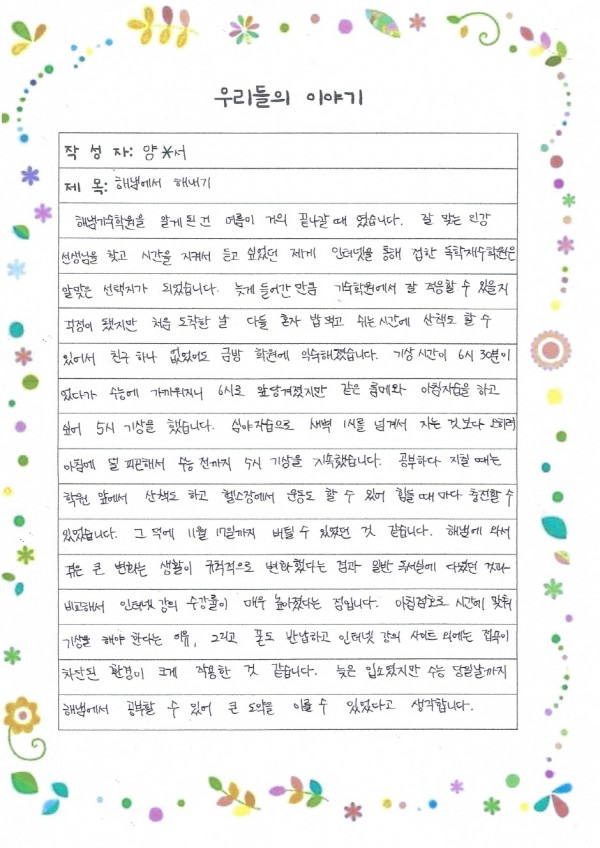 우리들의 이야기
작 성 자: 양*서
제 목: 해냄에서 해내기
해냄기숙학원을 알게 된 건 여름이 거의 끝나갈 때 였습니다. 잘 맞는 인강
선생님을 찾고 시간을 지켜서 듣고 싶었던 제게 인터넷을 통해 접한 독학재수학원은
알맞은 선택지가 되었습니다. 늦게 들어간 만큼 기숙학원에서 잘 적응할 수 있을지
걱정이 됐지만 처음 도착한 날 다들 혼자 밥 먹고 쉬는 시간에 산책도 할 수
있어서 친구 하나 없었어도 금방 학원에 익숙해졌습니다. 기상 시간이 6시 30분이
었다가 수능에 가까워지니 6시로 앞당겨졌지만 같은 룸메와 아침자습을 하고
싶어 5시 기상을 했습니다. 심야자습으로 새벽 1시를 넘겨서 자는 것 보다 오히려
아침에 덜 피곤해서 수능 전까지 5시 기상을 지속했습니다. 공부하다 지칠 때는
학원 앞에서 산책도 하고 헬스장에서 운동도 할 수 있어 힘들 때 마다 충전할 수
있었습니다. 그 덕에 11월 17일까지 버틸 수 있었던 것 같습니다. 해냄에 와서
겪은 큰 변화는 생활이 규칙적으로 변화했다는 점과 일반 독서실에 다녔던 것과
비교해서 인터넷 강의 수강률이 매우 높아졌다는 점입니다. 아침점호로 시간에 맞춰
기상을 해야 한다는 이유, 그리고 폰도 반납하고 인터넷 강의 사이트 외에는 접속이
차단된 환경이 크게 작용한 것 같습니다. 늦은 입소였지만 수능 당일날까지
해냄에서 공부할 수 있어 큰 도약을 이룰 수 있었다고 생각합니다.